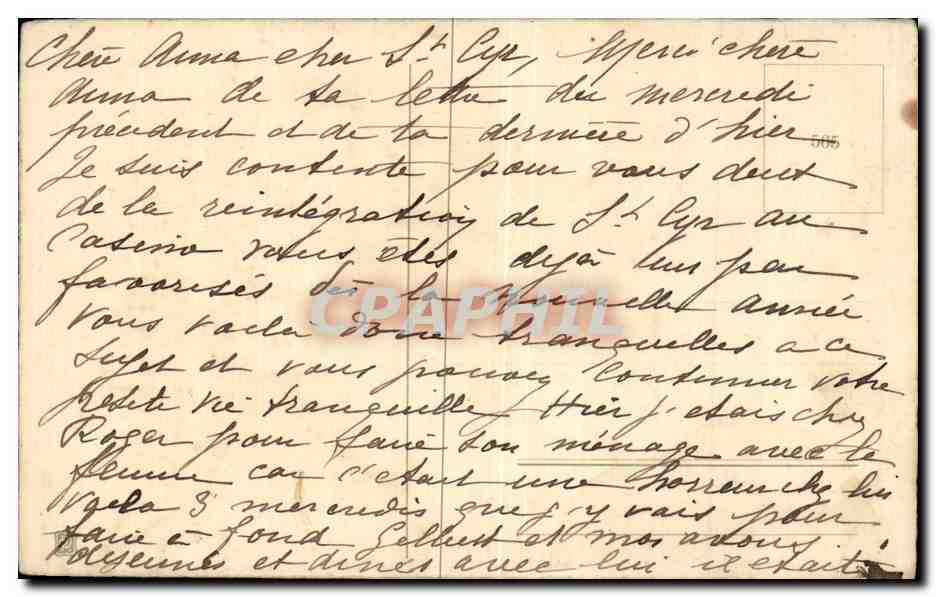 Chère Anna cher St Cyr, Merci chère
Anna de ta lettre du mercredi
précédent et de ta dernière d'hier
505
Je suis contente pour vous deux
de la reintégration de St Cyr au
Casino vous êtes dejà un peu
favorisés dès la nouvelle année
CPAPHIL
vous voila donc tranquilles a ce
sujet et vous pouvez continuer votre
petite vie tranquille, Hier j'etais chez
Roger pour faire son ménage avec la
femme car c'était une horreur chez lui
voila 3 mercredis que j'y vais pour
faire à fond Gilbert et moi avons
dejeunés et dinés avec lui il etait